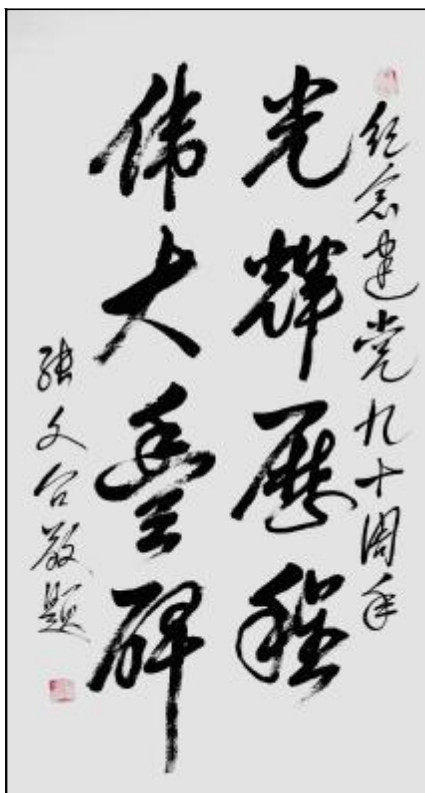 纪念建党九十周年
光辉历程
伟大丰碑
张文台敬题